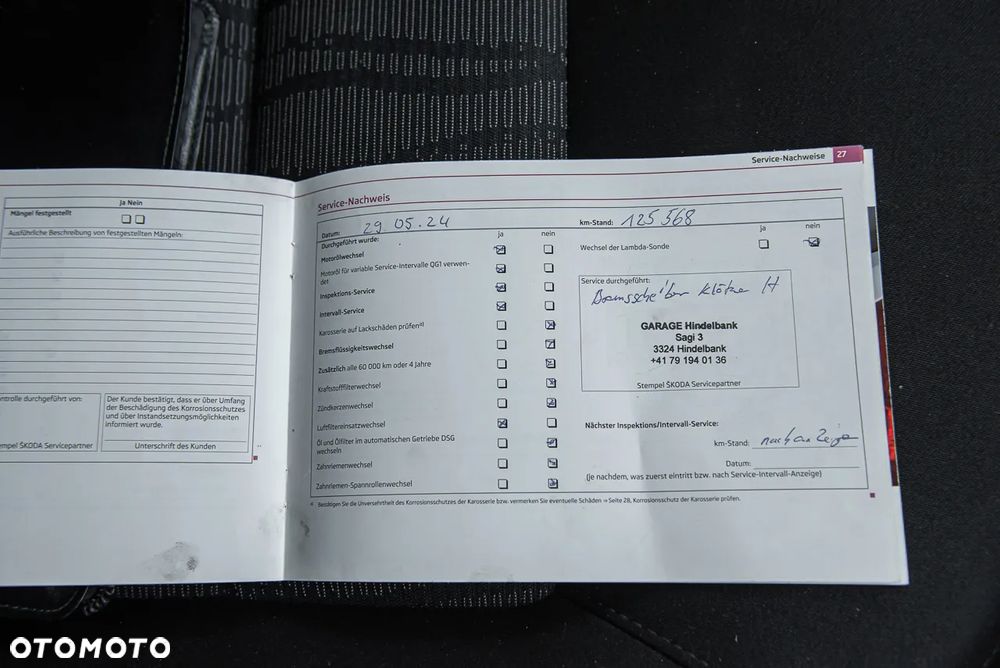 Service-Nachweise 27
Ja Nein
Mängel festgestellt
Ausführliche Beschreibung von festgestellten Mängeln:
ntrolle durchgeführt von:
empel ŠKODA Servicepartner
Der Kunde bestätigt, dass er über Umfang
der Beschädigung des Korrosionsschutzes
und über Instandsetzungsmöglichkeiten
informiert wurde.
Unterschrift des Kunden
Service-Nachweis
Datum: 29 05.24
km-Stand: 125 568
Durchgeführt wurde: ja nein
Motorölwechsel
Motoröl für variable Service-Intervalle QG1 verwen-
det
Inspektions-Service
Intervall-Service
Karosserie auf Lackschäden prüfen a)
Bremsflüssigkeitswechsel
Zusätzlich alle 60 000 km oder 4 Jahre
Kraftstofffilterwechsel
Zündkerzenwechsel
Luftfiltereinsatzwechsel
Öl und Ölfilter im automatischen Getriebe DSG
wechseln
Zahnriemenwechsel
Zahnriemen-Spannrollenwechsel
ja nein
Wechsel der Lambda-Sonde
Service durchgeführt:
Bremsscheiben Klötze H
GARAGE Hindelbank
Sagi 3
3324 Hindelbank
+41 79 194 01 36
Stempel ŠKODA Servicepartner
Nächster Inspektions/Intervall-Service:
km-Stand: nach Anzeige
Datum:
(je nachdem, was zuerst eintritt bzw. nach Service-Intervall-Anzeige)
a) Bestätigen Sie die Unversehrtheit des Korrosionsschutzes der Karosserie bzw. vermerken Sie eventuelle Schäden ⇒ Seite 28, Korrosionsschutz der Karosserie prüfen.
OTOMOTO